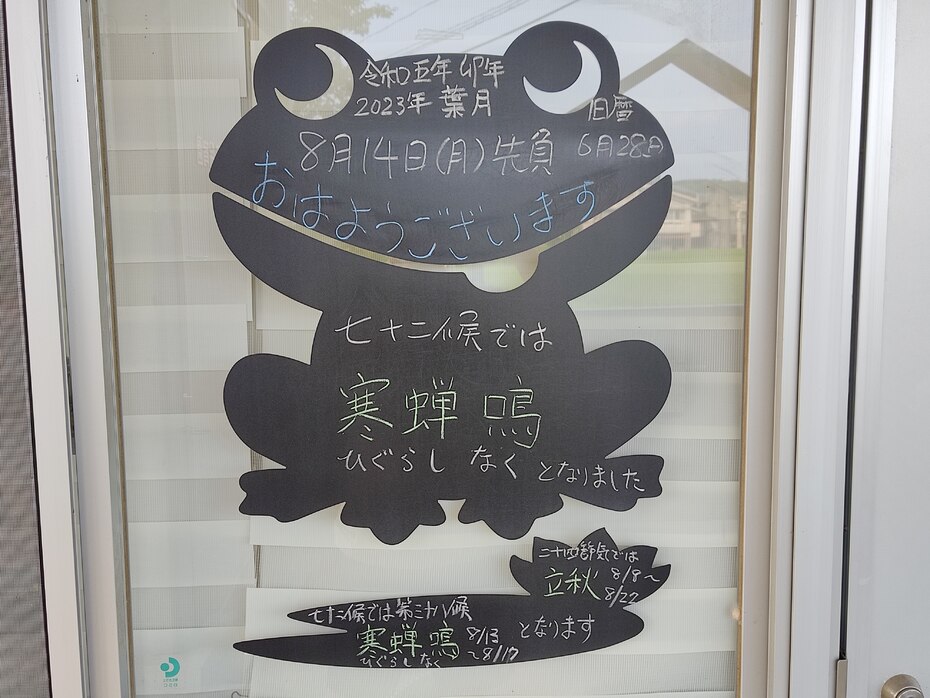 令和五年卯年
2023年 葉月
旧暦
8月14日(月)先負 6月28日
おはようございます
七十二候では
寒蝉鳴
ひぐらし なく となりました
二十四節気では
立秋 8/8～
8/22
七十二候では第三十八候
寒蝉鳴 8/13
～8/17
ひぐらし なく
となります